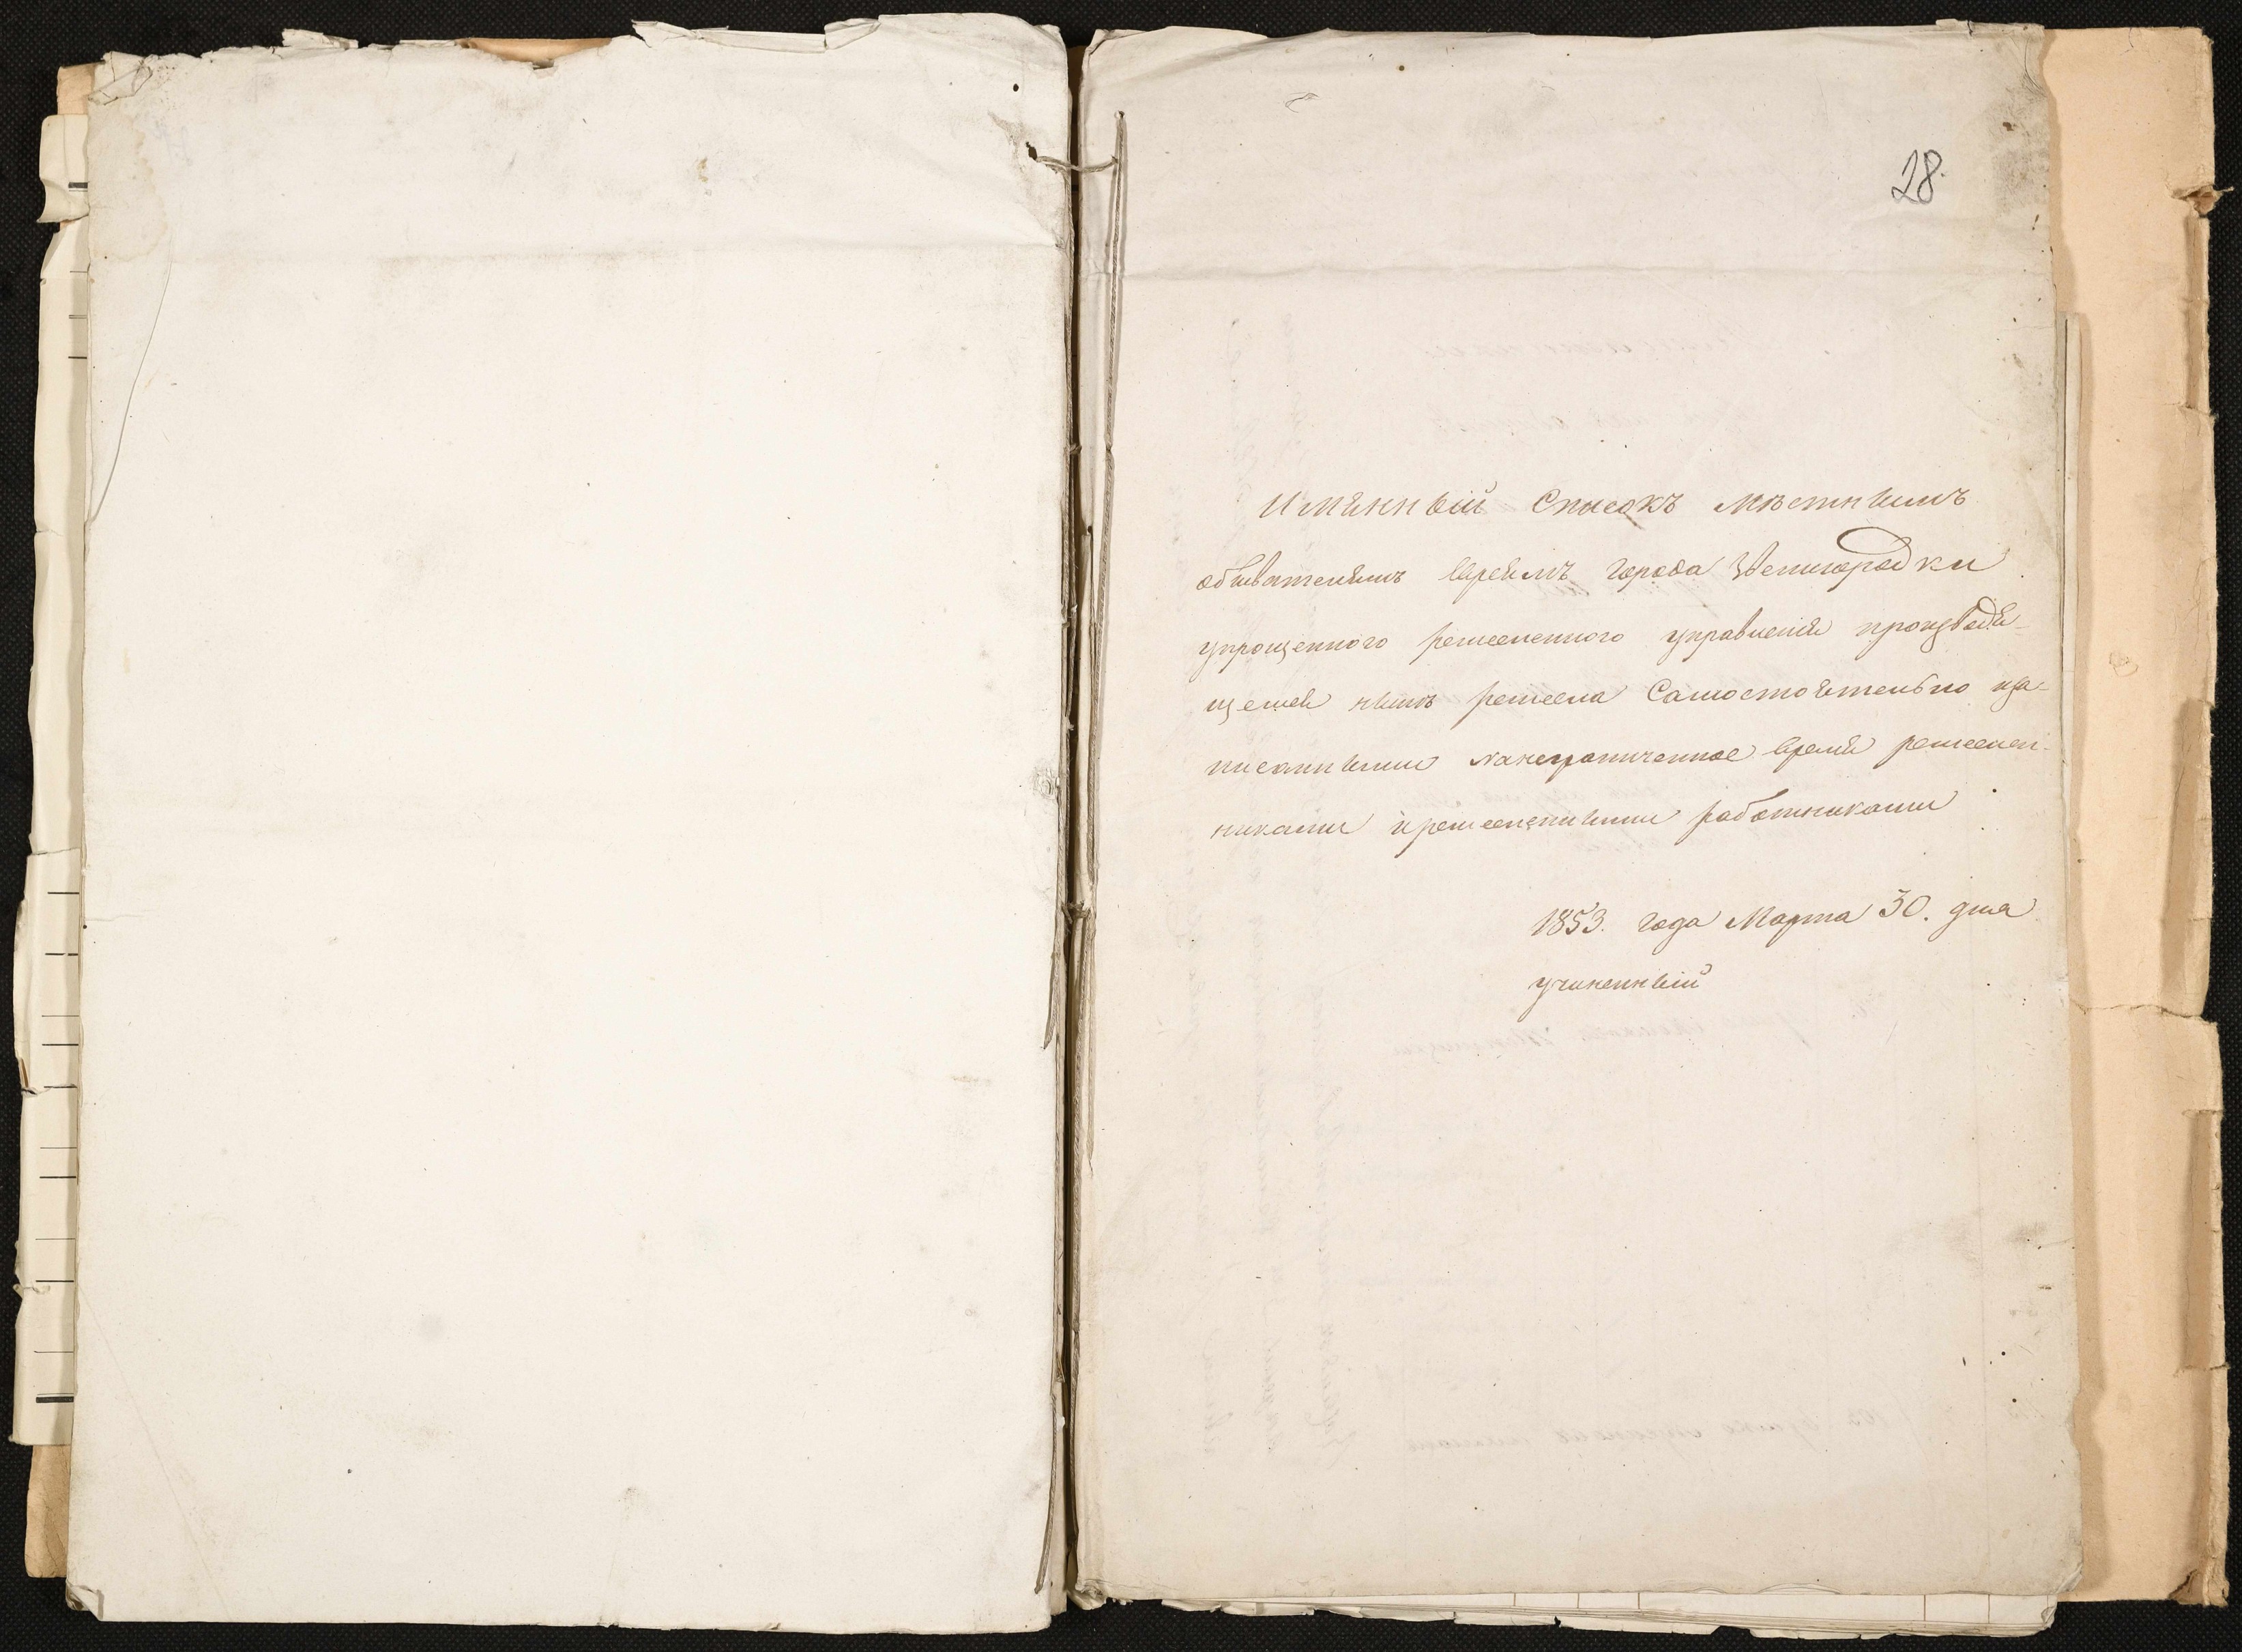 28.
Имянный Списокъ Мѣстнымъ
обывателямъ Евреямъ города Звенигородки
упрощенного ремесленного управления производя-
щемся нымъ ремесла Самостоятельно иза-
писаннымы нанеграниченное время ремеслен-
никами иремесленными работниками
1853. года Марта 30. дня
учиненный